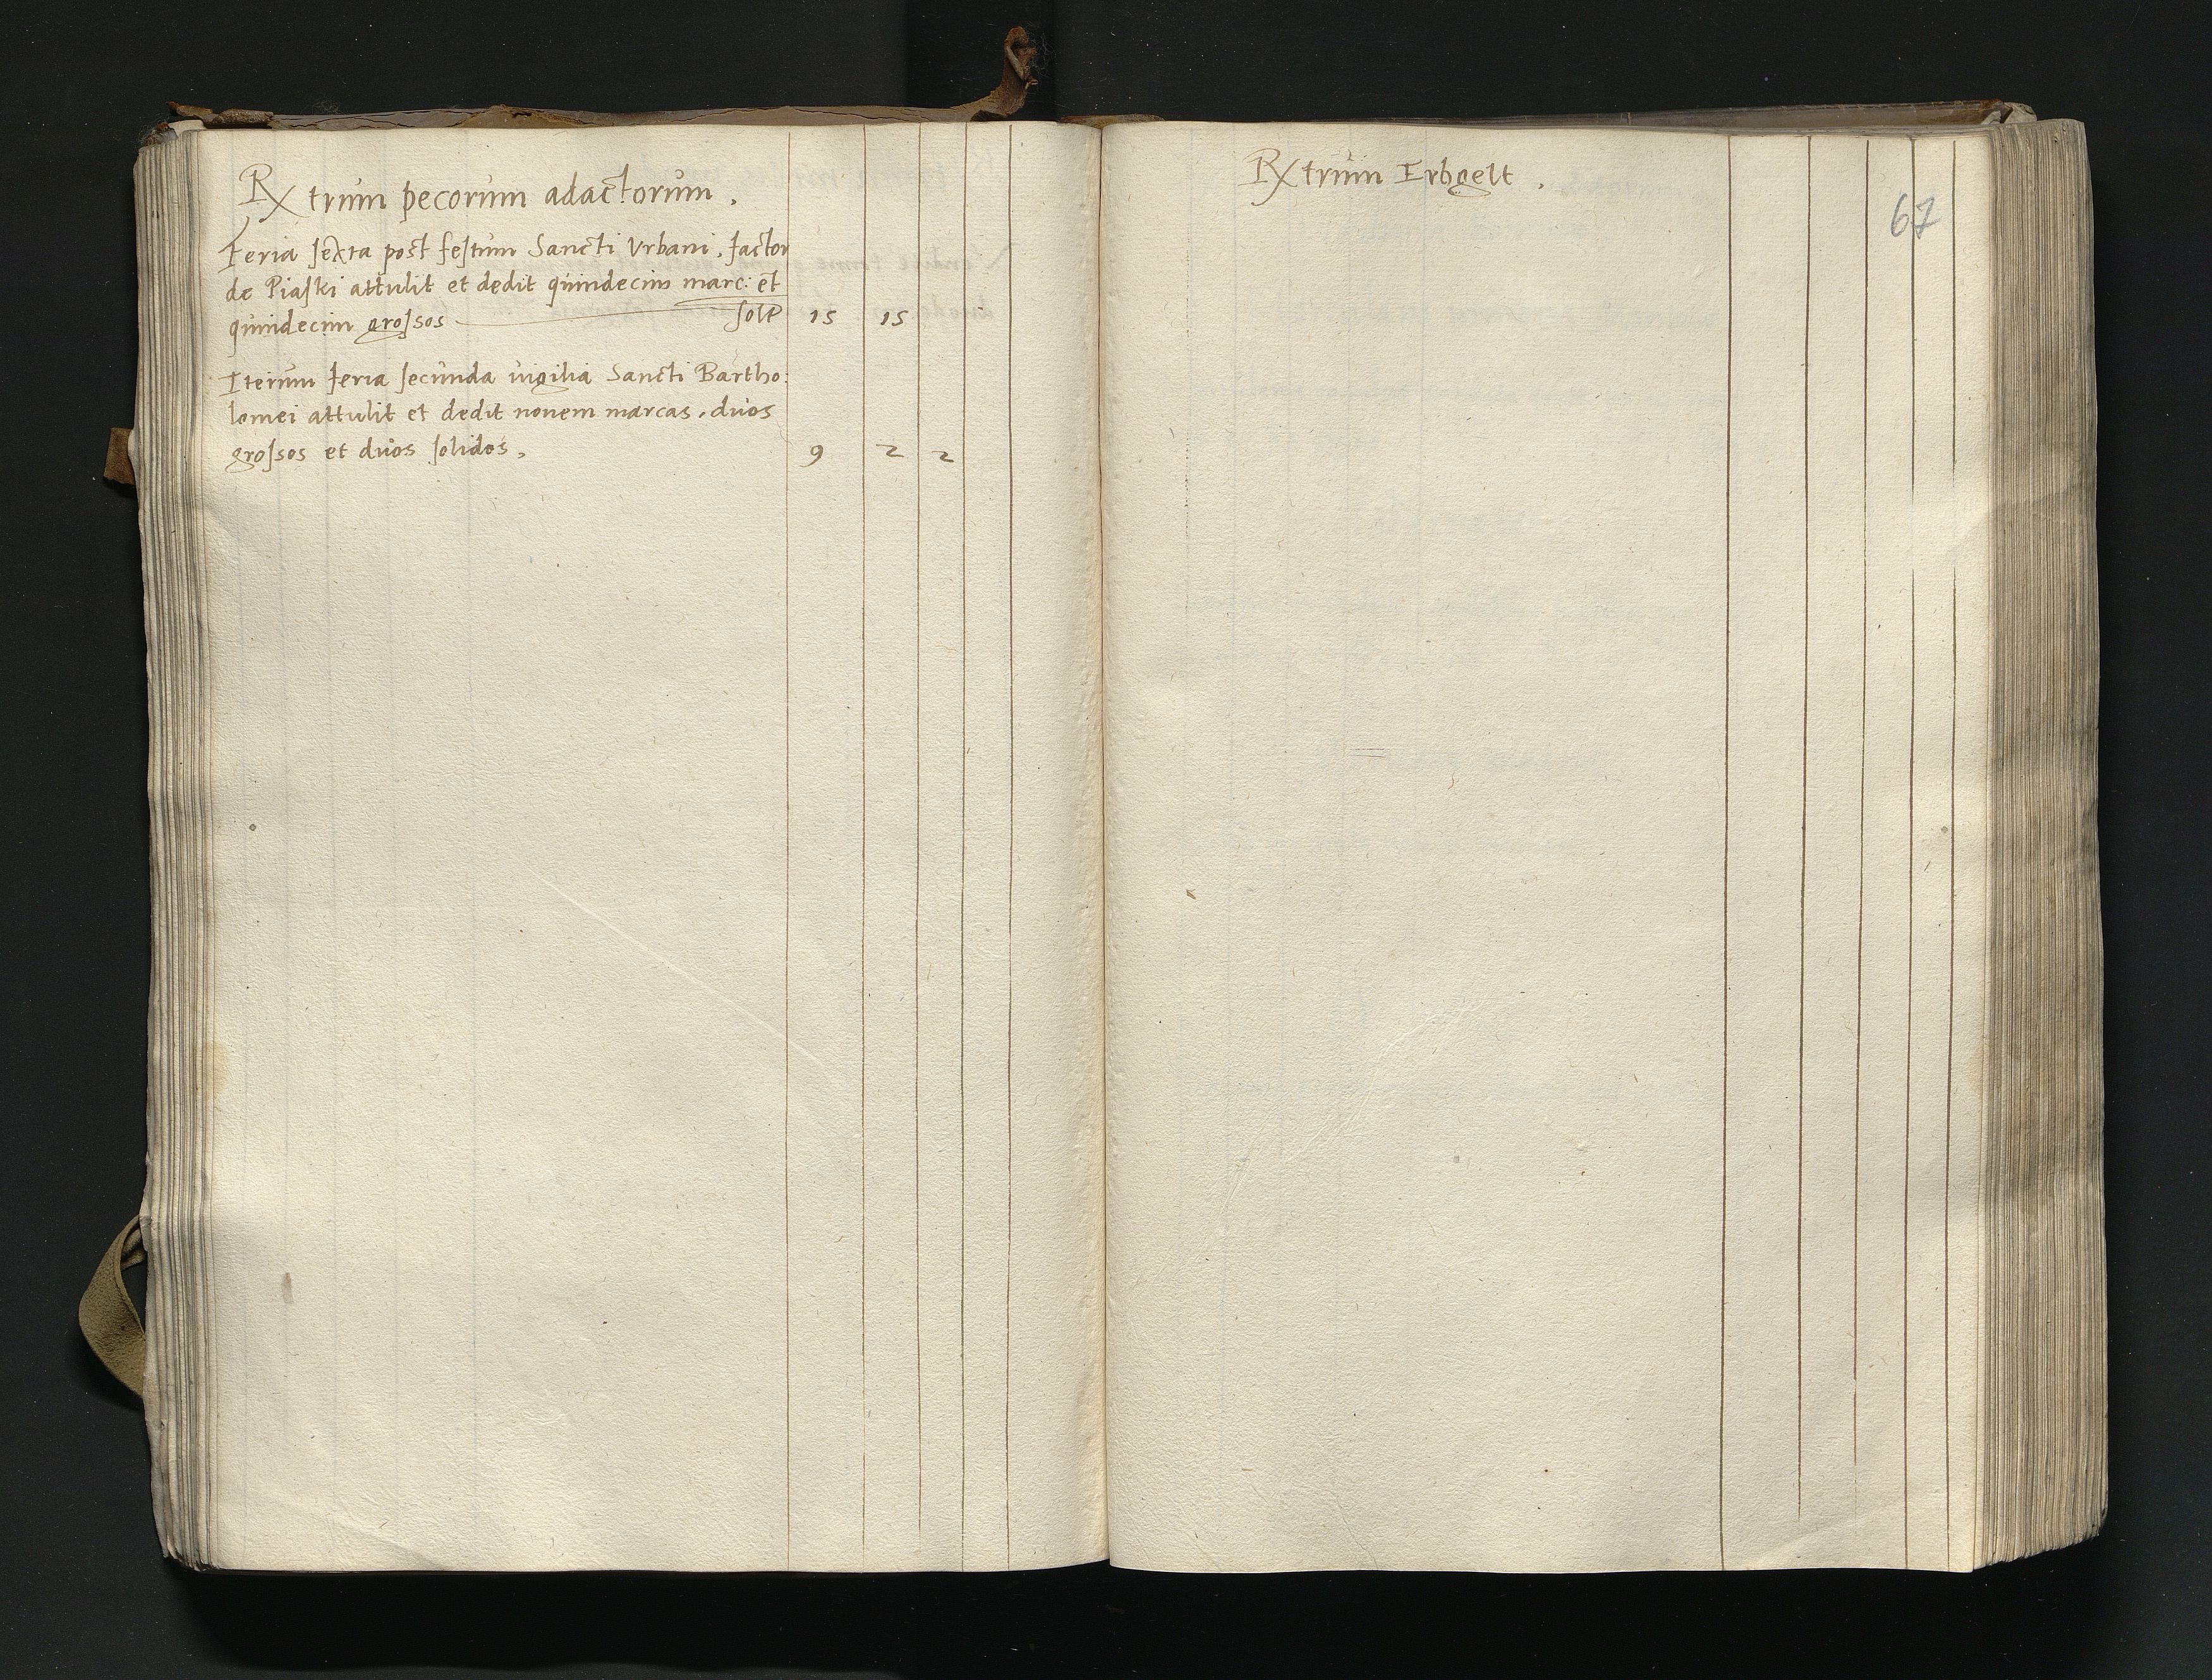 Rx trum pecorum adactorum.
Feria sexta post festum Sancti Vrbani. factor
de Piaski attulit et dedit quindecim marc: et
quindecim grossos solt 15 15
Iterum feria secunda uigilia Sancti Bartho:
lomei attulit et dedit nouem marcas. duos
grossos et duos solidos. 9 2 2
Rx trum Erbgelt.
67